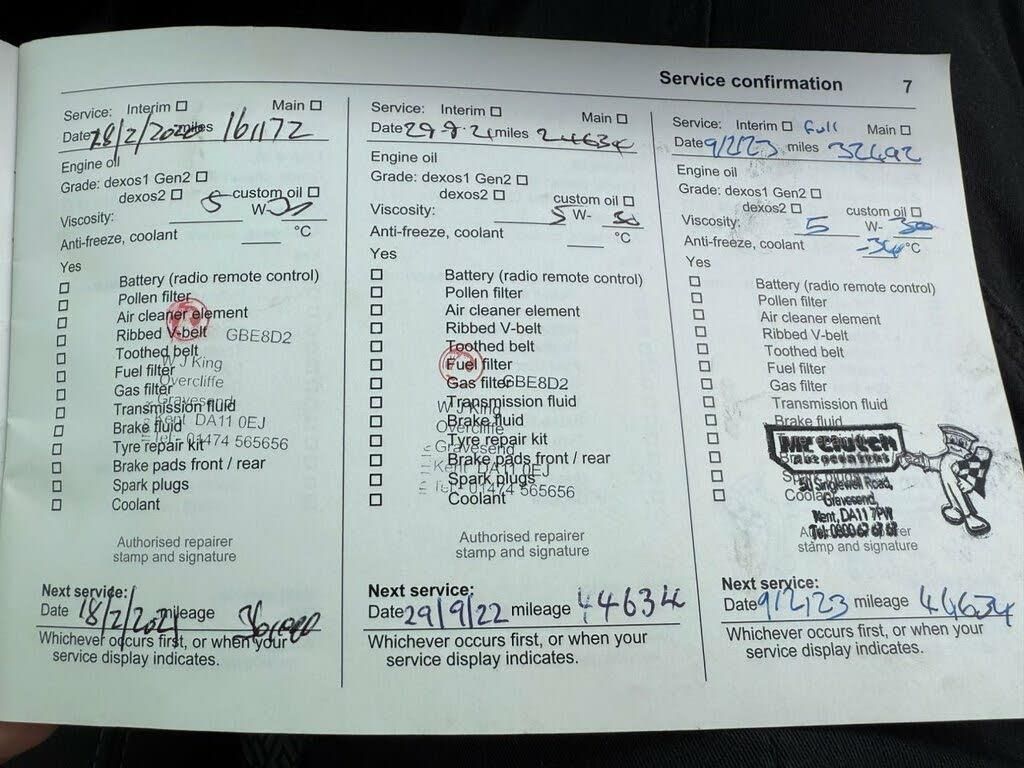 Service confirmation 7
Service: Interim Main
Date 18/2/2020 miles 16,172
Engine oil
Grade: dexos1 Gen2
dexos2 custom oil
Viscosity: 5 W- 30
Anti-freeze, coolant °C
Yes
Battery (radio remote control)
Pollen filter
Air cleaner element
Ribbed V-belt GBE8D2
Toothed belt
W J King
Fuel filter
Overcliffe
Gas filter
Gravesend
Transmission fluid
Kent DA11 0EJ
Brake fluid
Tel - 01474 565656
Tyre repair kit
Brake pads front / rear
Spark plugs
Coolant
Authorised repairer
stamp and signature
Next service:
Date 18/2/2021 mileage
Whichever occurs first, or when your
service display indicates.
Service: Interim Main
Date 29.9.21 miles 24634
Engine oil
Grade: dexos1 Gen2
dexos2 custom oil
Viscosity: 5 W- 30
Anti-freeze, coolant °C
Yes
Battery (radio remote control)
Pollen filter
Air cleaner element
Ribbed V-belt
Toothed belt
Fuel filter
Gas filter GBE8D2
Transmission fluid
W J King
Brake fluid
Overcliffe
Tyre repair kit
Gravesend
Brake pads front / rear
Kent DA11 0EJ
Spark plugs
Tel - 01474 565656
Coolant
Authorised repairer
stamp and signature
Next service:
Date 29/9/22 mileage 44634
Whichever occurs first, or when your
service display indicates.
Service: Interim Full Main
Date 9/2/23 miles 32692
Engine oil
Grade: dexos1 Gen2
dexos2 custom oil
Viscosity: 5 W- 30
Anti-freeze, coolant -34 °C
Yes
Battery (radio remote control)
Pollen filter
Air cleaner element
Ribbed V-belt
Toothed belt
Fuel filter
Gas filter
Transmission fluid
Brake fluid
Mr Clutch
Autocentres
Singlewell Road,
Gravesend,
Coolant
Kent, DA11 7PW
Tel: 0800 67 67 67
Authorised repairer
stamp and signature
Next service:
Date 9/2/23 mileage 44634
Whichever occurs first, or when your
service display indicates.